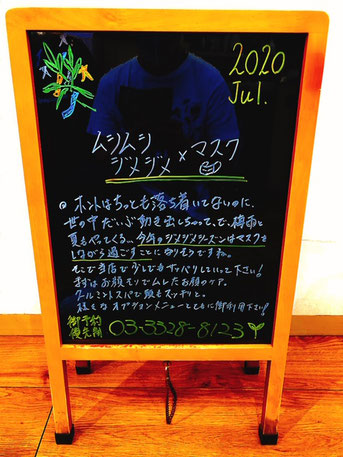 2020
Jul.
ムシムシ
ジメジメ × マスク
◎ ホントはちっとも落ち着いてないのに、
世の中だいぶ動き出しちゃって、で、梅雨と
夏もやってくる、、今年のジメジメシーズンはマスクを
しながら過ごすことになりそうですね。
そこで当店で少しでもサッパリしていって下さい!
まずはお顔そりでムレたお顔のケア。
クールミントスパで頭もスッキリと。
色んなオプションメニューとともに御利用下さい!
御予約
優先制
03-3528-8123